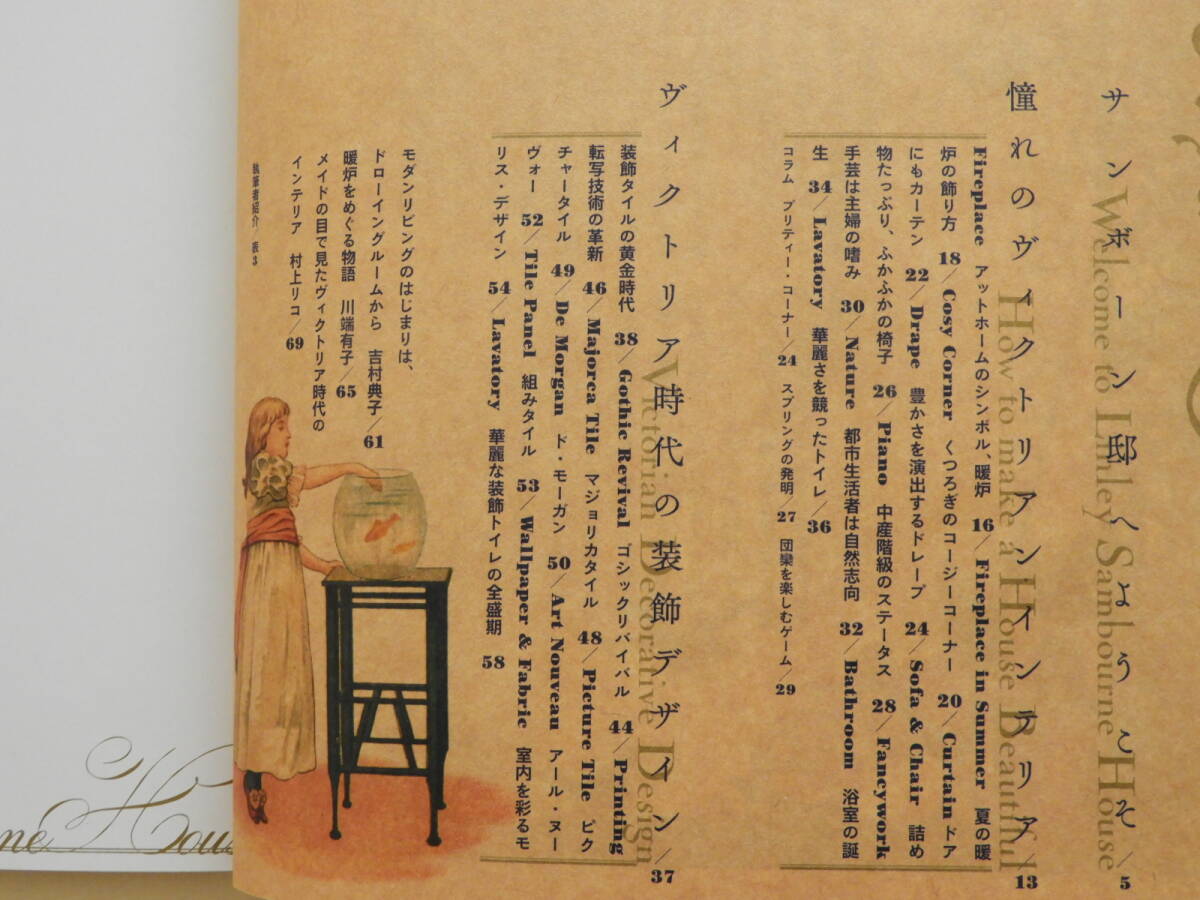 サンボーン邸へようこそ／5
Welcome to Linley Sambourne House
憧れのヴィクトリアンインテリア／13
How to make a House Beautiful
Fireplace アットホームのシンボル、暖炉 16／Fireplace in Summer 夏の暖
炉の飾り方 18／Cosy Corner くつろぎのコージーコーナー 20／Curtain ドア
にもカーテン 22／Drape 豊かさを演出するドレープ 24／Sofa & Chair 詰め
物たっぷり、ふかふかの椅子 26／Piano 中産階級のステータス 28／Fancywork
手芸は主婦の嗜み 30／Nature 都市生活者は自然志向 32／Bathroom 浴室の誕
生 34／Lavatory 華麗さを競ったトイレ／36
コラム プリティー・コーナー／24 スプリングの発明／27 団欒を楽しむゲーム／29
ヴィクトリア時代の装飾デザイン／37
Victorian Decorative Design
装飾タイルの黄金時代 38／Gothic Revival ゴシックリバイバル 44／Printing
転写技術の革新 46／Majorca Tile マジョリカタイル 48／Picture Tile ピク
チャータイル 49／De Morgan ド・モーガン 50／Art Nouveau アール・ヌー
ヴォー 52／Tile Panel 組みタイル 53／Wallpaper & Fabric 室内を彩るモ
リス・デザイン 54／Lavatory 華麗な装飾トイレの全盛期 58
モダンリビングのはじまりは、
ドローイングルームから 吉村典子／61
暖炉をめぐる物語 川端有子／65
メイドの目で見たヴィクトリア時代の
インテリア 村上リコ／69
執筆者紹介／表3
ne House